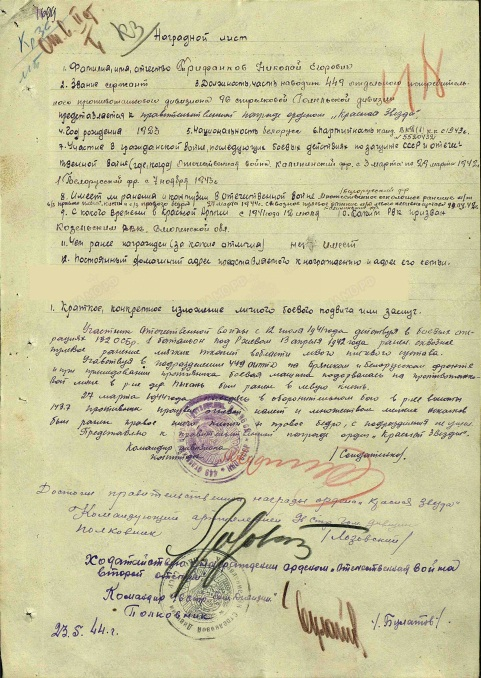 Наградной лист
1. Фамилия, имя, отчество Трифанков Николай Егорович
2. Звание сержант 3. Должность, часть наводчик 449 отдельного истребитель-
ного противотанкового дивизиона 96 стрелковой Гомельской дивизии
представляется к правительственной награде орденом „Красная Звезда"
4. Год рождения 1923 5. Национальность белорус 6. Партийность канд. ВКП(б) с 1943г.
7. Участие в гражданской войне, последующих боевых действиях по защите СССР и отече-
ственной войне (где, когда) Отечественная война Калининский фр. с 3 марта по 29 апреля 1942,
1 Белорусский фр. с 7 ноября 1943г.
8. Имеет ли ранения и контузии в отечественной войне
9. С какого времени в Красной Армии с 1941 года 12 июля 10. Каким РВК призван
Козельским РВК, Смоленской обл.
11. Чем ранее награжден (за какие отличия) не имеет
12. Постоянный домашний адрес представляемого к награждению и адрес его семьи.
1. Краткое, конкретное изложение личного боевого подвига или заслуг.
Участник Отечественной войны с 12 июля 1941 года действуя в боевых опе-
рациях 132 ОСБр. 1 батальон под 13 апреля 1942 года ранен сквозное
пулевое ранение мягких тканей области левого плечевого сустава.
Участвуя в подразделении 449 на Брянском и Белорусском фронте
и при преследовании противника, боевая машина подорвалась на противотанко-
вой мине в р-не дер. был ранен в левую кисть.
27 марта 1944 года в оборонительном бою в р-не высоты
143.7 противник произвел налет и множеством мелких осколков
был ранен правое плечо, кисть и правое бедро, с подразделения не ушел.
Представляю к правительственной награде орден „Красная Звезда"
Командир дивизиона
капитан
Достоин правительственной награды ордена „Красная Звезда"
Командующий артиллерией 96 стр. Гом. дивизии
полковник /Лозовский/
Ходатайствую о награждении орденом „Отечественная война
второй степени"
Командир 96 стр. дивизии
Полковник /Булатов/
23.5.44 г.